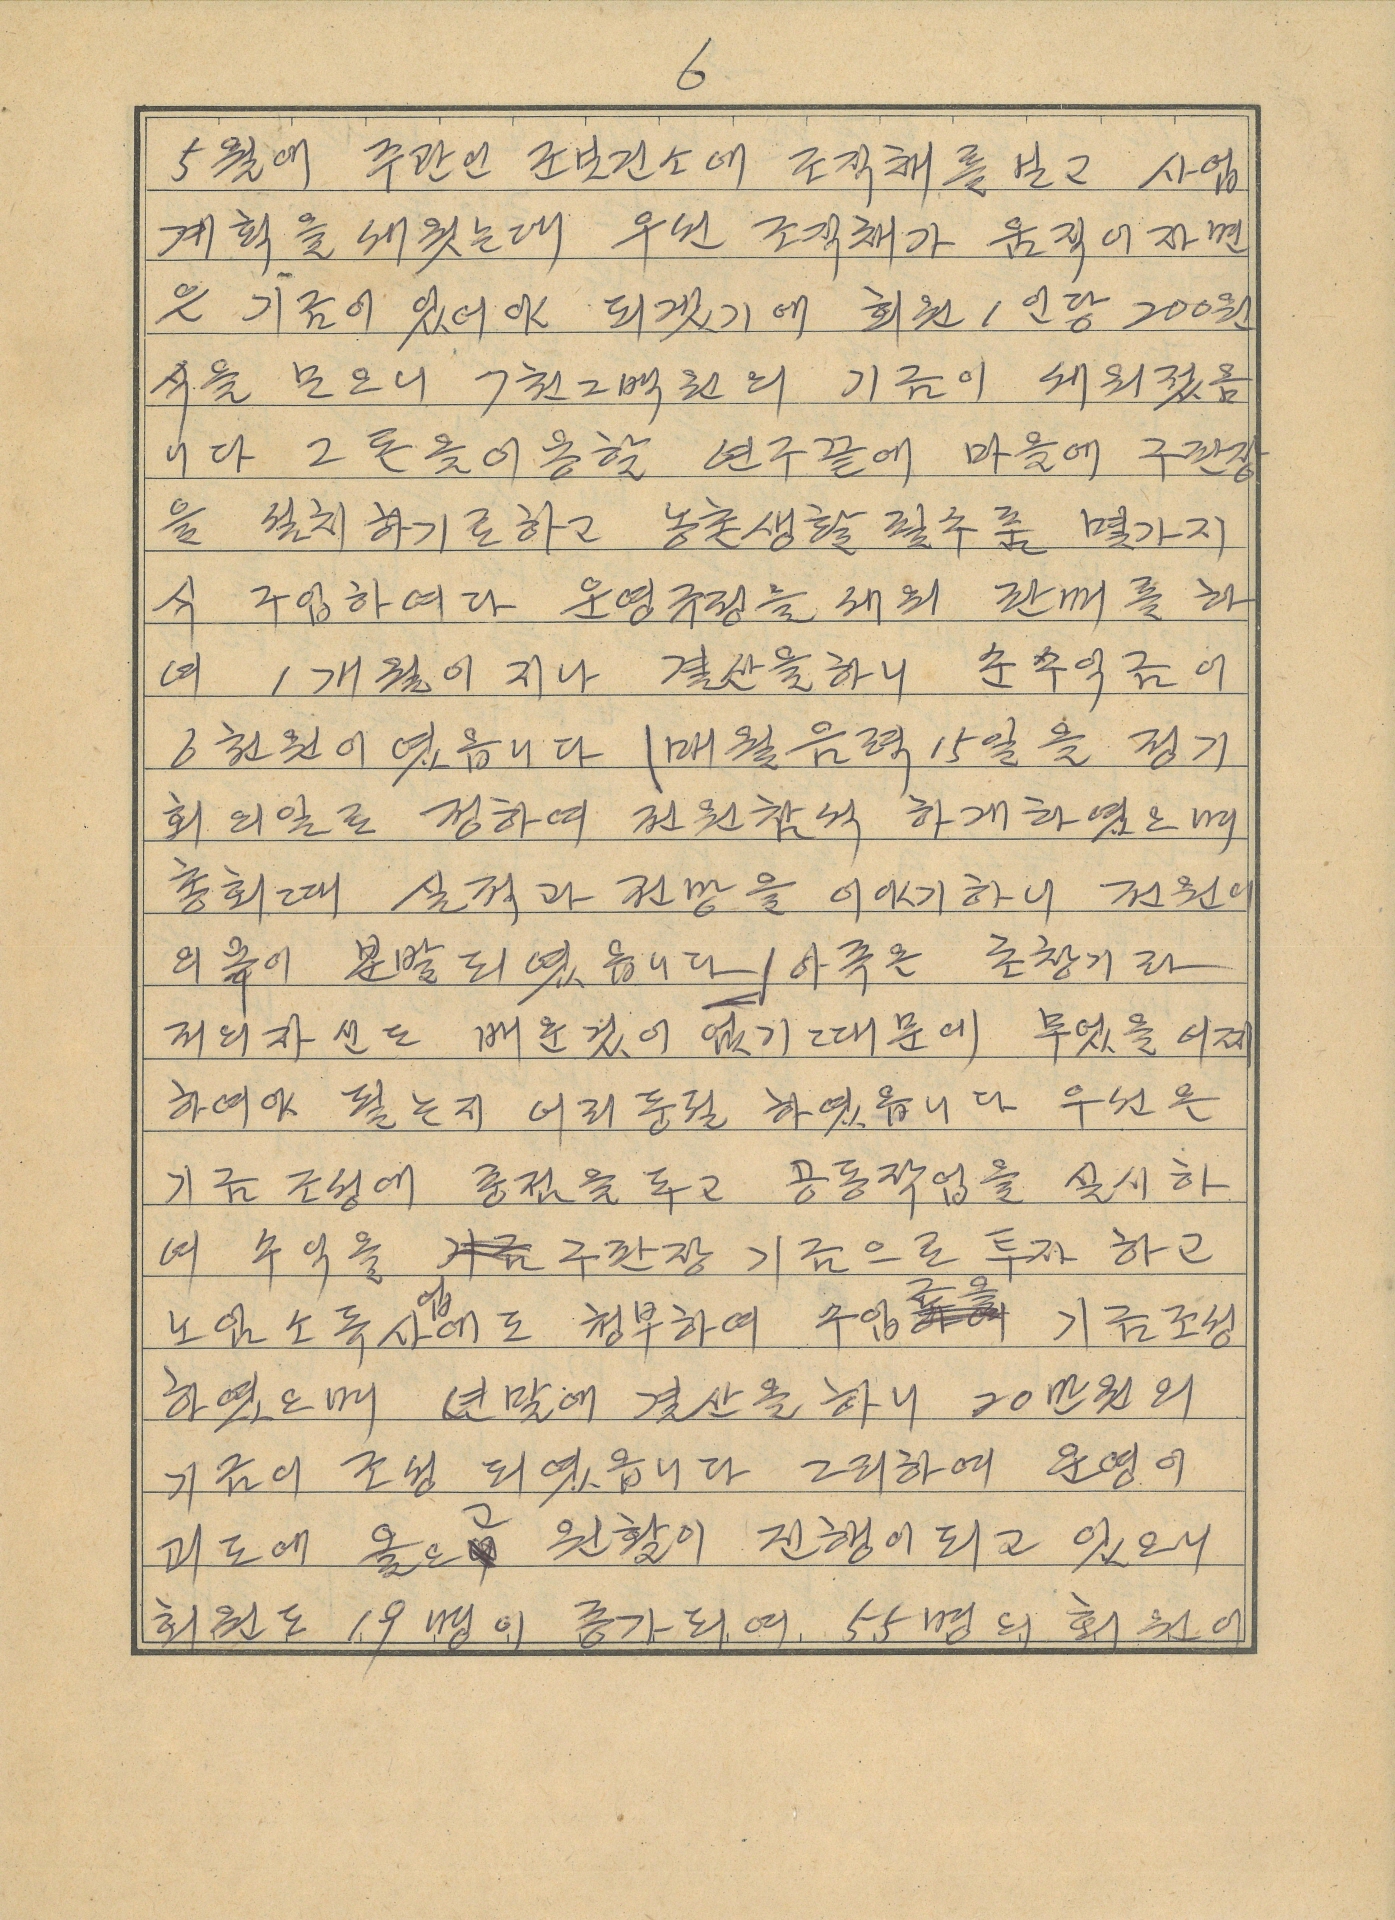 6
5월에 주관인 군보건소에 조직채를 보고 사업
계획을 세웟는대 우선 조직채가 움직이자면
은 기금이 있어야 되겠기에 회원 1인당 200원
식을 모으니 7천2백원의 기금이 세워졌읍
니다 그 돈을 이용할 연구끝에 마을에 구판장
을 설치하기로하고 농촌생활필수품 몇가지
식 구입하여다 운영규정을 세워 판매를 하
여 1개월이 지나 결산을하니 순수익금이
6천원이였읍니다 매월음력 15일을 정기
회의일로 정하여 전원참석 하개하였으며
총회때 실적과 전망을 이야기하니 전원이
의욕이 분발되였읍니다 아죽은 초창기라
저의자신도 배운것이 없기때문에 무엇을 어찌
하여야 될는지 어리둥절 하였읍니다 우선은
기금조성에 중점을 두고 공동작업을 실시하
여 수익을 기금 구판장 기금으로 투자 하고
노임소득사업에도 청부하여 수입금을 기금조성
하였으며 년말에 결산을 하니 20만원의
기금이 조성 되였읍니다 그리하여 운영이
괴도에 올으고 원활이 진행이되고 있으니
회원도 19명이 증가되여 55명의 회원이